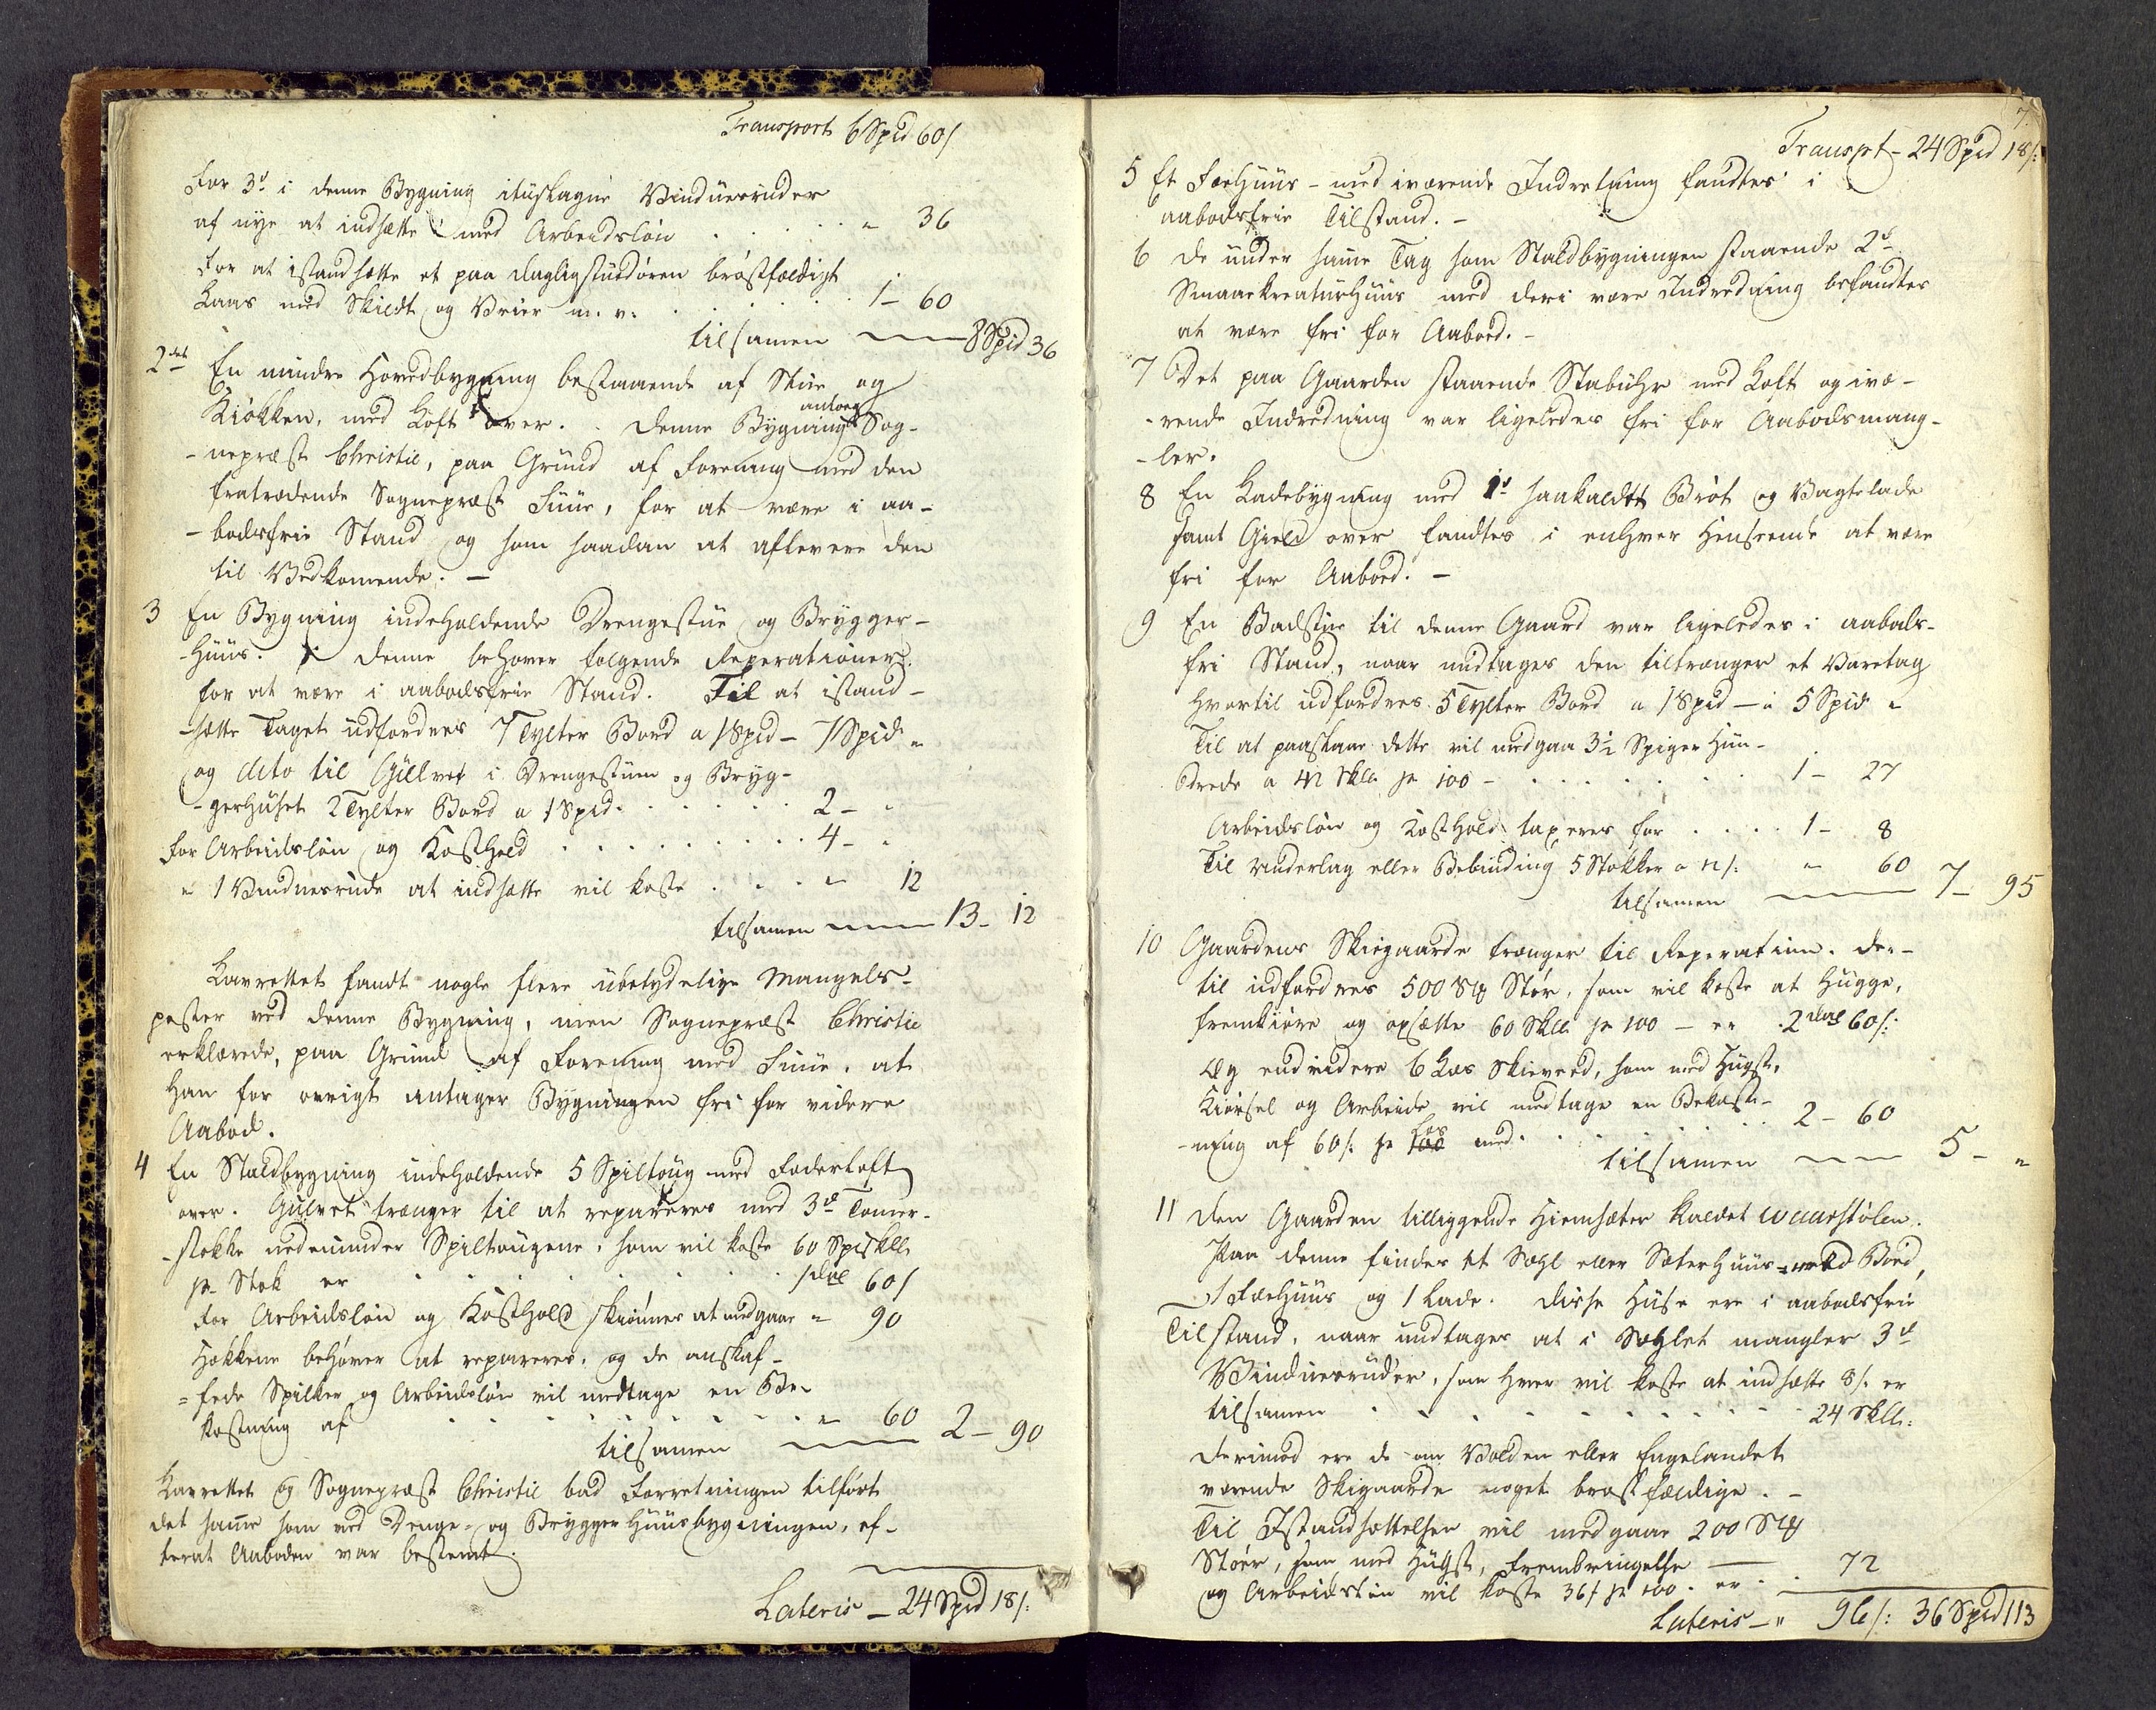 Transport 6 Spd 60/
For 3de i denne Bygning ituslagne Vinduesruder
af nye at indsætte med Arbeidsløn . . . . . " 36
For at istandsætte et paa Dagligstuedøren brøstfældigt
Laas med Skildt og Vrier m. v. . . . . . 1 - 60
tilsamen 8 Spd 36
2det En mindre Hovedbygning bestaaende af Stue og
Kiøkken, med Loft over. Denne Bygning antog Sog-
-nepræst Christie, paa Grund af Forening med den
fratrædende Sognepræst Fuue, for at være i aa-
-bodsfrie Stand og som saadan at aflevere den
til Vedkomende. -
3 En Bygning indeholdende Drengestue og Brygger-
-huus. Denne behøver følgende Reperationer
for at være i aabodsfrie Stand. Til at istand-
-sætte Taget udfordres 7 Tylter Bord a 1 Spd - 7 Spd "
og dito til Gulvet i Drengestuen og Bryg-
-gerhuset 2 Tylter Bord a 1 Spd . . . . . 2 - "
For Arbeidsløn og Kosthold . . . . . . . 4 - "
" 1 Vinduesrude at indsætte vil koste . . . " 12
tilsamen 13 - 12
Lavrettet fandt nogle flere ubetydelige Mangels-
poster ved denne Bygning, men Sognepræst Christie
erklærede, paa Grund af Forening med Fuue, at
han for øvrigt antager Bygningen fri for videre
Aabod.
4 En Staldbygning indeholdende 5 Spiltoug med Foderloft
over. Gulvet trænger til at repareres med 3de Tømer-
-stokke nedenunder Spiltougene, som vil koste 60 Spskll
pr Stok er . . . . . . . . 1 dlr 60/
For Arbeidsløn og Kosthold skiønnes at medgaae " 90
Hækkene behøver at repareres, og de anskaf-
=fede Spilker og Arbeidsløn vil medtage en Be-
kostning af . . . . . . . . " 60
tilsamen 2 - 90
Lavrettet og Sognepræst Christie bad Forretningen tilført
det same som ved Drenge- og Bryggerhuusbygningen, ef-
terat Aaboden var bestemt.
Lateris - 24 Spd 18/:
7.
Transpt - 24 Spd 18/:
5 Et Fæehuus - med iværende Indretning fandtes i
aabodsfrie Tilstand. -
6 De under same Tag som Staldbygningen staaende 2de
Smaaekreaturhuus med deri være Indredning befandtes
at være fri for Aabod. -
7 Det paa Gaarden staaende Stabuhr med Loft og ivæ-
-rende Indredning var ligeledes fri for Aabodsmang-
-ler.
8 En Ladebygning med 1s saakaldtt Brøt og Vagtelade
samt Gield over fandtes i enhver Henseende at være
fri for Aabod. -
9 En Badstue til denne Gaard var ligeledes i aabods-
fri Stand, naar undtages den tiltrænger et Varetag
hvortil udfordres 5 Tylter Bord a 1 Spd - a 5 Spd "
Til at paaslaae dette vil medgaa 3½ Spiger Hun-
drede a 42 Skll pr 100 - . . . . . . 1 - 27
Arbeidsløn og Kosthold taxeres for . . . . 1 - 8
Til Underlag eller Bebinding 5 Stokker a 12/: " 60
tilsamen 7 - 95
10 Gaardens Skiegaarde trænger til Reperation. Der-
til udfordres 500 Stk Stør, som vil koste at hugge,
fremkiøre og opsætte 60 Skll pr 100 - er . 2 dlr 60/:
Og end videre 6 Læs Skieved, som med Hugst,
Kiørsel og Arbeide vil medtage en Bekost-
-ning af 60/: pr 100 Læs med . . . . . . 2 - 60
tilsamen 5 - "
11 Den Gaarden tilliggende Hiemsæter kaldet Waarstølen.
Paa denne findes et Sæhl eller Sæterhuus med Bord,
1 Fæehuus og 1 Lade. Disse Huse ere i aabodsfrie
Tilstand, naar undtages at i Sæhlet mangler 3de
Vinduesruder, som hver vil koste at indsætte 8/: er
tilsamen . . . . . . . . . 24 Skll:
Derimod ere de om Volden eller Engelandet
værende Skigaarde noget brøstfældige. -
Til Istandsættelsen vil medgaae 200 Stk
Støer, som med Hugst, Frembringelse
og Arbeidsløn vil koste 36/ pr 100. er . . 72
Lateris - " 96/: 36 Spd 113